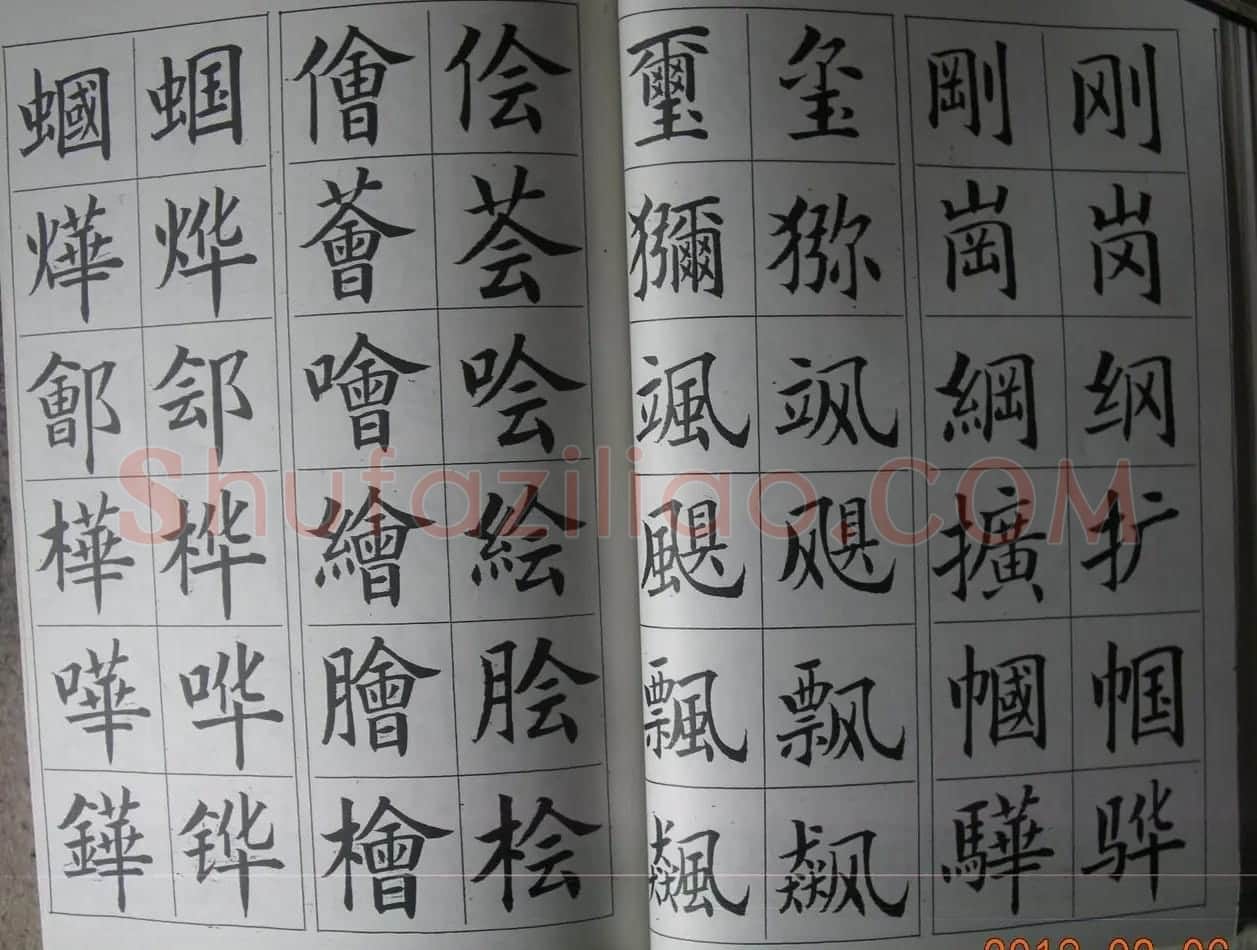 蟈 蝈 儈 侩
燁 烨 薈 荟
鄶 郐 噲 哙
樺 桦 繪 絵
嘩 哗 膾 脍
鏵 铧 檜 桧
璽 玺 剛 刚
獼 猕 崗 岗
颯 飒 綱 纲
颶 飓 擴 扩
飄 飘 幗 帼
飆 飙 驊 骅
Shufaziliao.COM